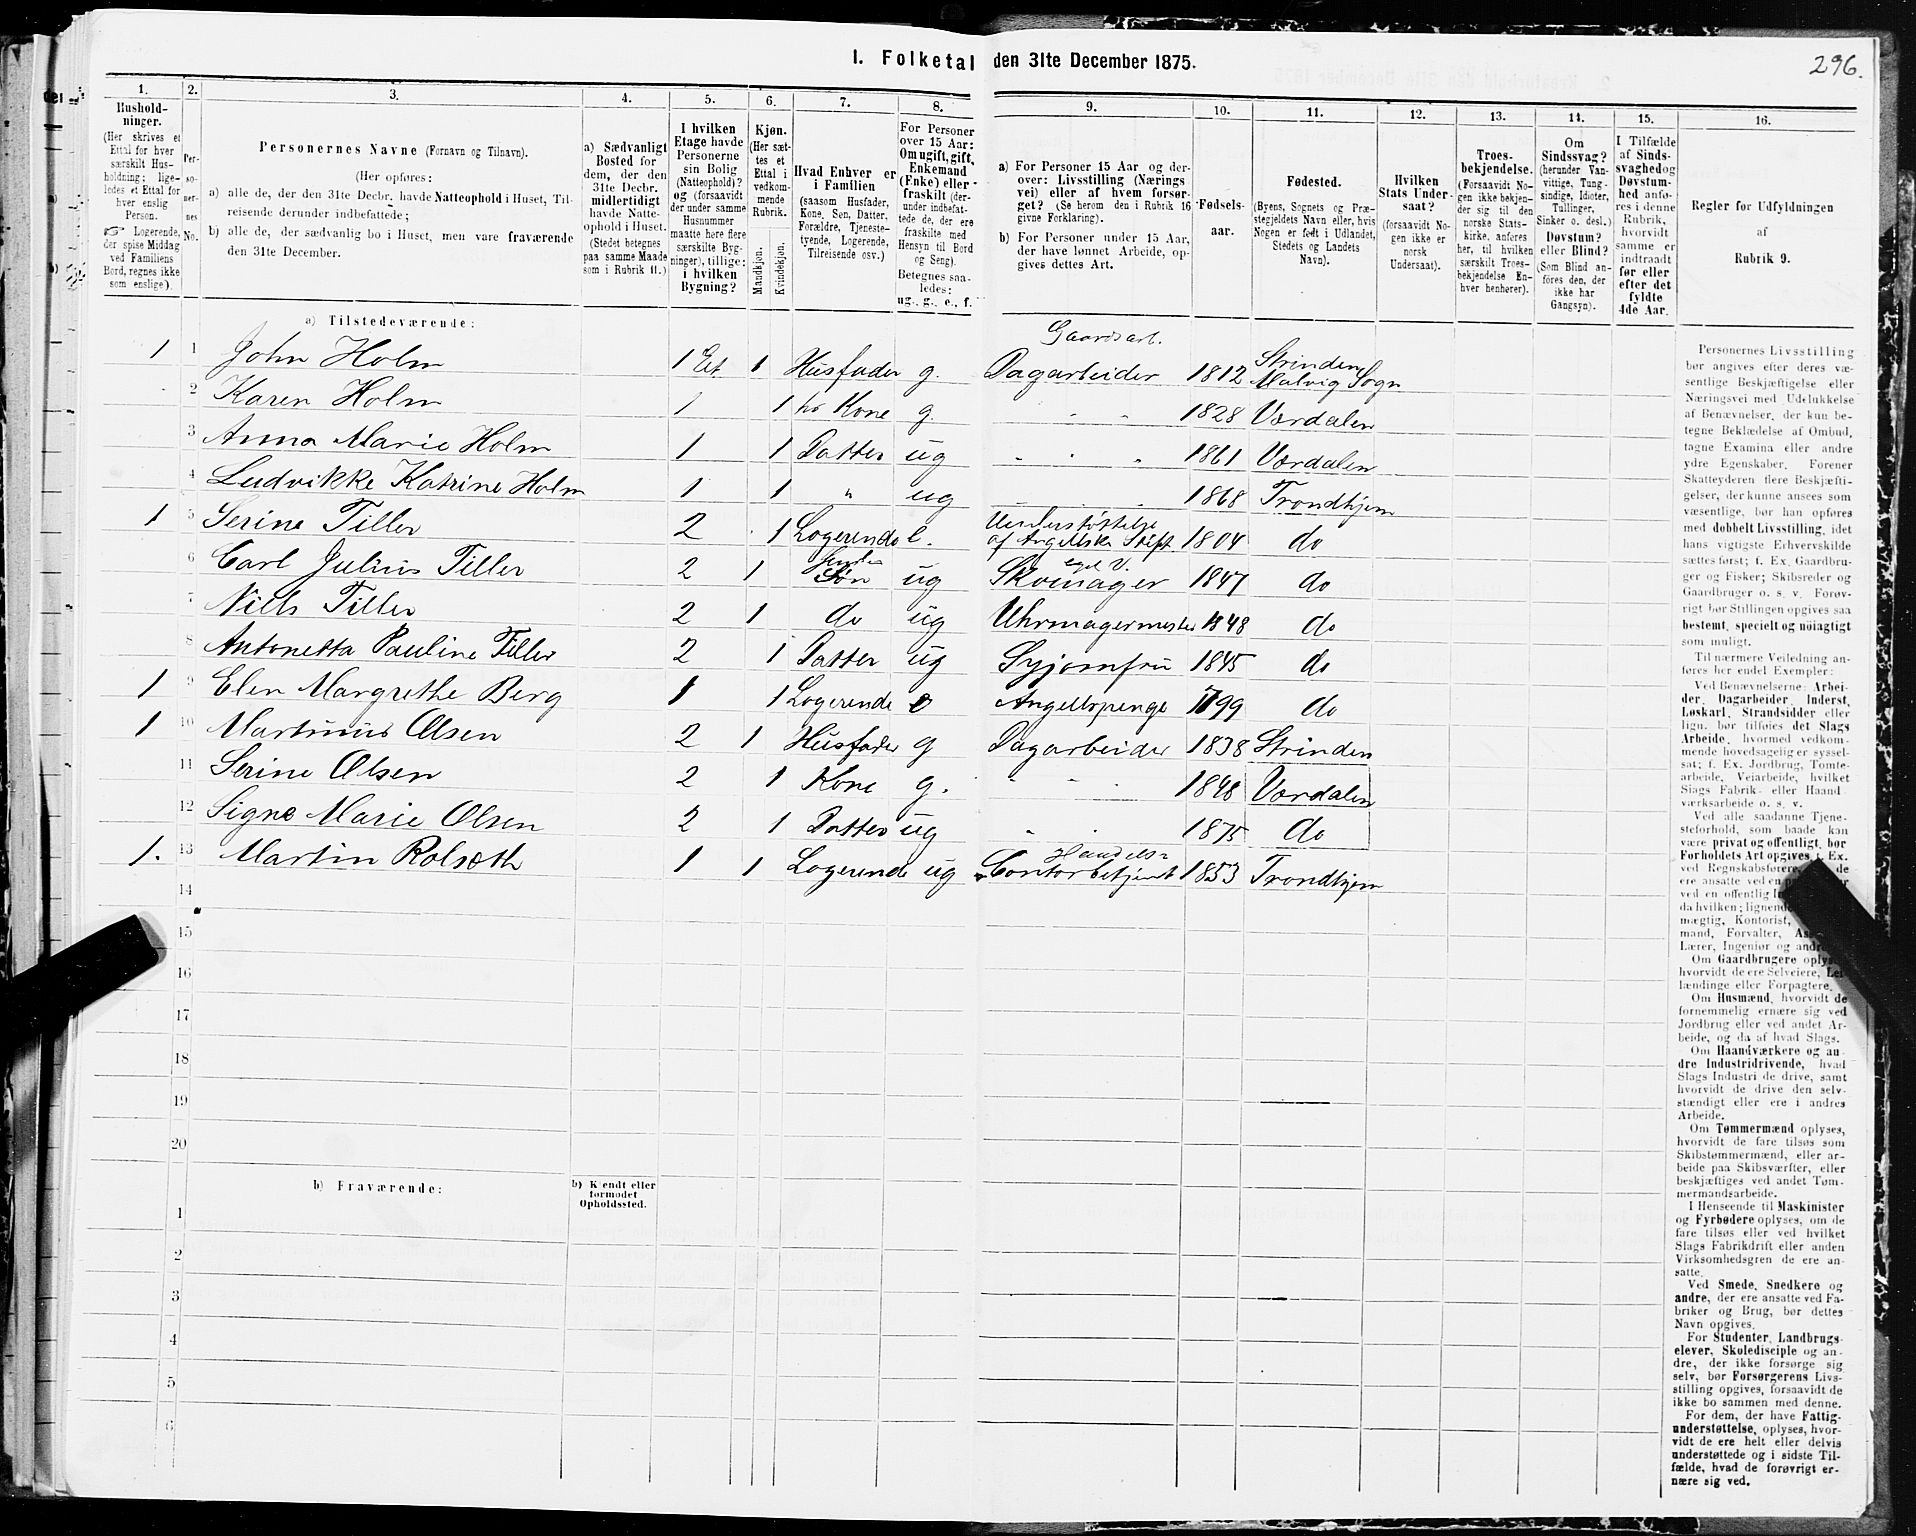 296.
I. Folketal den 31te December 1875.
1. 2. 3. 4. 5. 6. 7. 8. 9. 10. 11. 12. 13. 14. 15. 16.
Hushold-
ninger.
(Her skrives et
Ettal for hver
særskilt Hus-
holdning; lige-
ledes et Ettal for
hver enslig
Person.
☞ Logerende,
der spise Middag
ved Familiens
Bord, regnes ikke
som enslige).
Per-
so-
ner-
nes
No.
Personernes Navne (Fornavn og Tilnavn).
(Her opføres:
a) alle de, der den 31te Decbr. havde Natteophold i Huset, Til-
reisende derunder indbefattede;
b) alle de, der sædvanlig bo i Huset, men vare fraværende
den 31te December.
a) Sædvanligt
Bosted for
dem, der den
31te Decbr.
midlertidigt
havde Natte-
ophold i Huset.
(Stedet betegnes
paa samme Maade
som i Rubrik 11.)
I hvilken
Etage havde
Personerne
sin Bolig
(Natteophold)?
og (forsaavidt
der under samme
Husnummer
maatte here flere
særskilte Byg-
ninger), tillige:
i hvilken
Bygning?
Kjøn.
(Her sæt-
tes et
Ettal i
vedkom-
mende
Rubrik.
Mandkjøn.
Kvindekjøn.
Hvad Enhver er
i Familien
(saasom Husfader,
Kone, Søn, Datter,
Forældre, Tjeneste-
tyende, Logerende,
Tilreisende osv.)
For Personer
over 15 Aar:
Om ugift, gift,
Enkemand
(Enke) eller
fraskilt (der-
under indbefat-
tede de, der ere
fraskilte med
Hensyn til Bord
og Seng).
Betegnes saa-
ledes:
ug., g., e., f.
a) For Personer 15 Aar og der-
over: Livsstilling (Nærings
vei) eller af hvem forsør-
get? (Se herom den i Rubrik 16
givne Forklaring).
b) For Personer under 15 Aar,
der have lønnet Arbeide, op-
gives dettes Art.
Fødsels-
aar.
Fødested.
(Byens, Sognets og Præ-
stegjeldets Navn eller, hvis
Nogen er født i Udlandet,
Stedets og Landets
Navn).
Hvilken
Stats Under-
saat?
(forsaavidt No-
gen ikke er
norsk
Undersaat).
Troes-
bekjendelse.
(Forsaavidt No-
gen ikke bekjen-
der sig til den
norske Stats-
kirke, anføres
her, til hvilken
særskilt Troes-
bekjendelse En-
hver henhører).
Om
Sindssvag?
(herunder Van-
vittige, Tung-
sindige, Idioter,
Tullinger,
Sinker o. desl.)
Døvstum?
eller Blind?
(Som Blind an-
føres den, der
ikke har
Gangsyn).
I Tilfælde
af Sinds-
svaghed og
Døvstum-
hed anfø-
res i denne
Rubrik,
hvorvidt
samme er
indtraadt
før eller
efter det
fyldte
4de Aar.
Regler for Udfyldningen
af
Rubrik 9.
a) Tilstedeværende:
Gaardsarb.
1 1 John Holm 1 Et. 1 Husfader g. Dagarbeider 1812 Strinden Malvig Sogn
2 Karen Holm 1 1 hs Kone g. " " 1828 Værdalen
3 Anna Marie Holm 1 1 Datter ug " " " 1861 Værdalen
4 Ludvikke Katrine Holm 1 1 " ug 1868 Trondhjem
1 5 Serine Tiller 2 1 Logerende e. Understøttelse af Angellske Stift 1804 do
6 Carl Julius Tiller 2 1 Søn ug Skomager 1847 do
7 Niels Tiller 2 1 do ug Uhrmagermester 1848 do
8 Antonetta Pauline Tiller 2 1 Datter ug Syjomfru 1845 do
1 9 Elen Margrethe Berg 1 1 Logerende e Angellspenge 1799 do
1 10 Martinus Olsen 2 1 Husfader g Dagarbeider 1838 Strinden
11 Serine Olsen 2 1 Kone g. " " 1848 Værdalen
12 Signe Marie Olsen 2 1 Datter ug " " 1875 do
1. 13 Martin Rolseth 1 1 Logerende ug Handels- Contorbetjent 1853 Trondhjem
14
15
16
17
18
19
20
b) Fraværende:
b) Kjendt eller
formodet
Opholdssted.
1
2
3
4
5
6
Personernes Livsstilling
bør angives efter deres væ-
sentlige Beskjæftigelse eller
Næringsvei med Udelukkelse
af Benævnelser, der kun be-
tegne Beklædelse af Ombud,
tagne Examina eller andre
ydre Egenskaber. Forener
Skatteyderen flere Beskjæfti-
gelser, der kunne ansees som
væsentlige, bør han opføres
med dobbelt Livsstilling, idet
hans vigtigste Erhvervskilde
sættes først; f. Ex. Gaardbru-
ger og Fisker; Skibsreder og
Gaardbruger o. s. v. Forøv-
rigt bør Stillingen opgives saa
bestemt, specielt og nöiagtigt
som muligt.
Til nærmere Veiledning an-
føres her endel Exempler:
Ved Benævnelserne: Arbei-
der, Dagarbeider, Inderst,
Løskarl, Strandsidder eller
lign. bør tilføies det Slags
Arbeide, hvormed vedkom-
mende hovedsagelig er syssel-
sat; f. Ex. Jordbrug, Tomte-
arbeide, Veiarbeide, hvilket
Slags Fabrik- eller Haand-
værksarbeide o. s. v.
Ved alle saadanne Tjene-
steforhold, som baade kan
være privat og offentligt, bør
Forholdets Art opgives, f. Ex.
ved Regnskabsførere,
ere ansatte ved en
ved en offentlig
da hvilken; lignende
mægtig, Kontorist,
mand, Forvalter,
Lærer, Ingeniør og
Om Gaardbrugere
hvorvidt de ere Selveiere,
lændinge eller Forpagtere.
Om Husmænd, hvorvidt de
fornemmelig ernære sig ved
Jordbrug eller ved andet Ar-
beide, og da af hvad Slags.
Om Haandværkere og an-
dre Industridrivende, hvad
Slags Industri de drive, samt
hvorvidt de drive den selv-
stændigt eller ere i andres
Arbeide.
Om Tømmermænd oplyses,
hvorvidt de fare tilsøs som
Skibstømmermænd, eller ar-
beide paa Skibsværfter, eller
beskjæftiges ved andet Tøm-
mermandsarbeide.
I Henseende til Maskinister
og Fyrbødere oplyses, om de
fare tilsøs eller ved hvilket
Slags Fabrikdrift eller anden
Virksomhedsgren de ere an-
satte.
Ved Smede, Snedkere og
andre, der ere ansatte ved Fa-
briker og Brug, bør dettes
Navn opgives.
For Studenter, Landbrugs-
elever, Skoledisciple og an-
dre, der ikke forsørge sig
selv, bør Forsørgerens Livs-
stilling opgives, forsaavidt de
ikke bo sammen med denne.
For dem, der have Fattig-
understøttelse, oplyses, hvor-
vidt de ere helt eller delvis
understøttede og i sidste Til-
fælde, hvad de forøvrigt er-
nære sig ved.